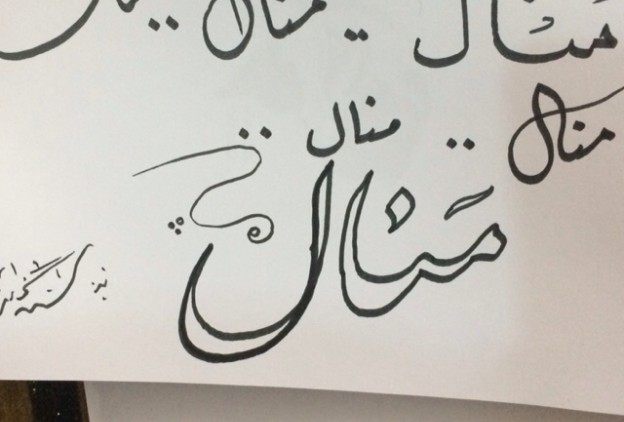 منال
منال
منال
منال
مَنال